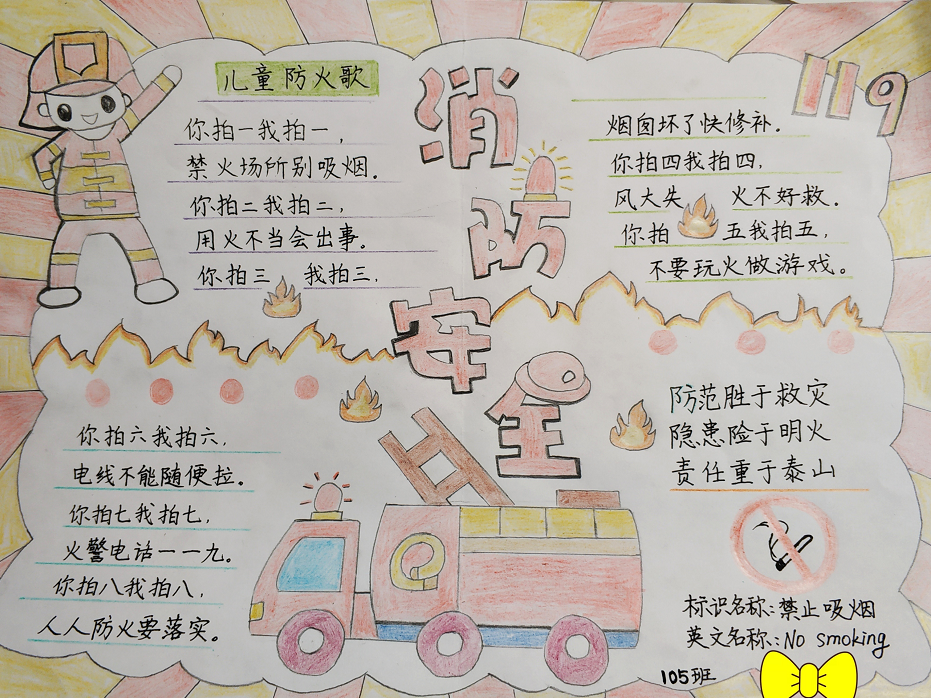 消防安全
119
儿童防火歌
你拍一我拍一，
禁火场所别吸烟。
你拍二我拍二，
用火不当会出事。
你拍三我拍三，
烟囱坏了快修补。
你拍四我拍四，
风大失火不好救。
你拍五我拍五，
不要玩火做游戏。
你拍六我拍六，
电线不能随便拉。
你拍七我拍七，
火警电话一一九。
你拍八我拍八，
人人防火要落实。
防范胜于救灾
隐患险于明火
责任重于泰山
标识名称：禁止吸烟
英文名称：No smoking
105班